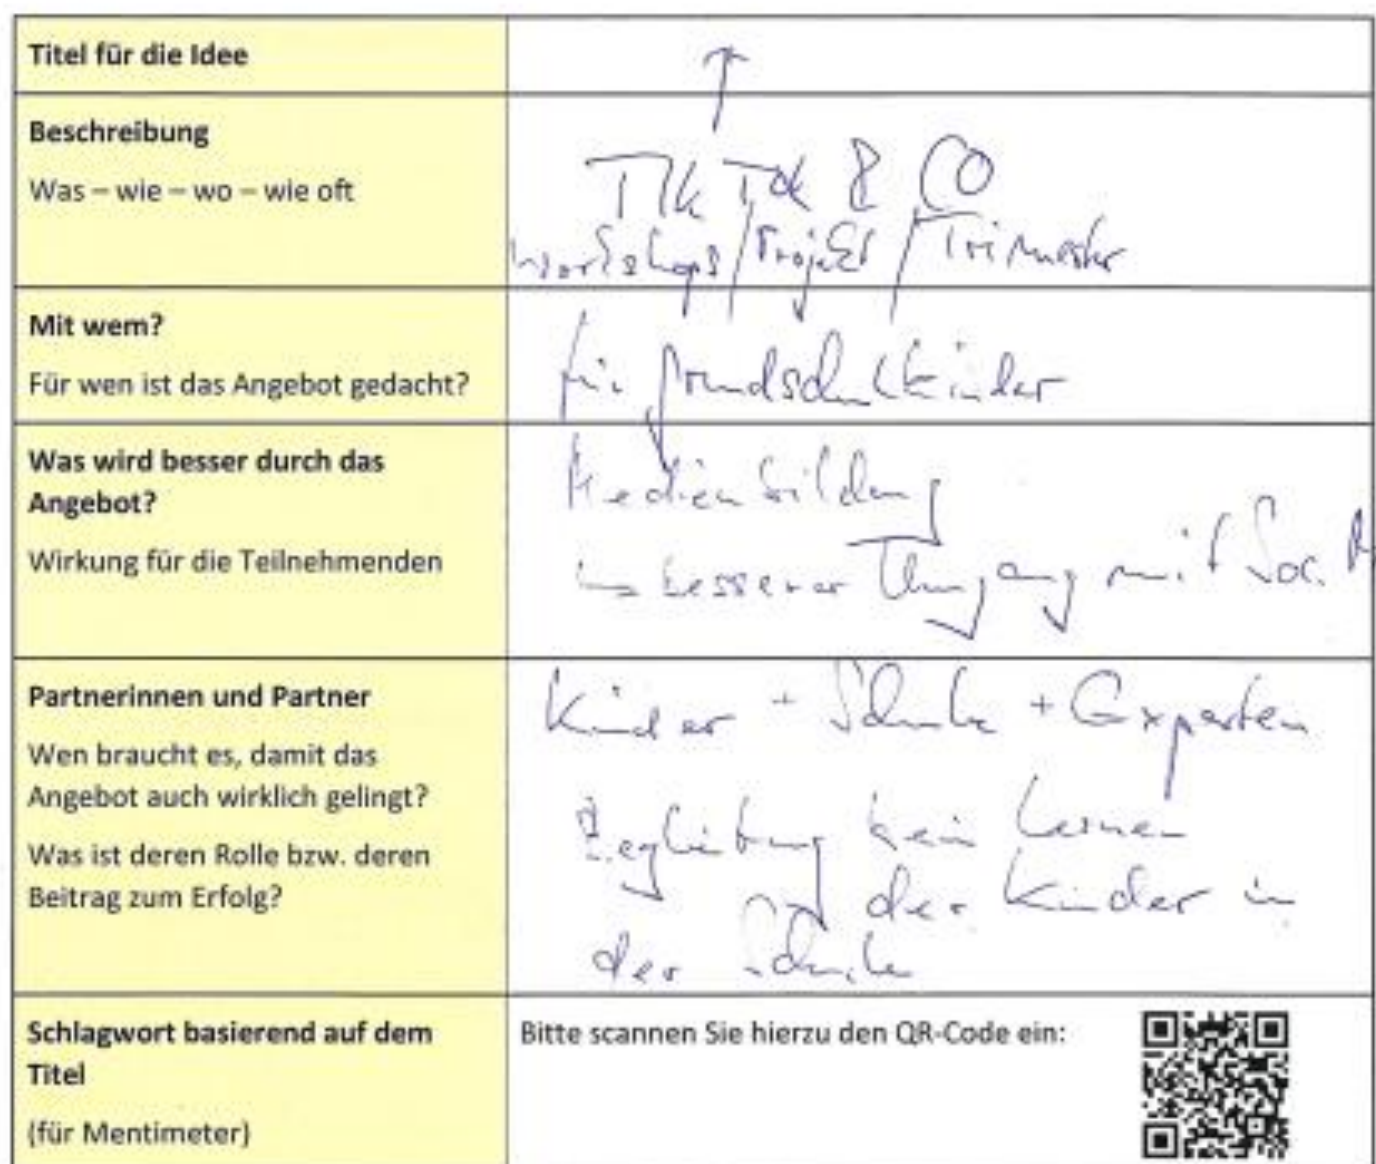 Titel für die Idee
↑
Beschreibung
Was – wie – wo – wie oft
TikTok & CO
Workshops / Projekt / Trimester
Mit wem?
Für wen ist das Angebot gedacht?
für Grundschulkinder
Was wird besser durch das
Angebot?
Wirkung für die Teilnehmenden
Medienbildung
↳ besserer Umgang mit Soc. M
Partnerinnen und Partner
Wen braucht es, damit das
Angebot auch wirklich gelingt?
Was ist deren Rolle bzw. deren
Beitrag zum Erfolg?
Kinder + Schule + Experten
Begleitung beim Lernen
der Kinder in
der Schule
Schlagwort basierend auf dem
Titel
(für Mentimeter)
Bitte scannen Sie hierzu den QR-Code ein: